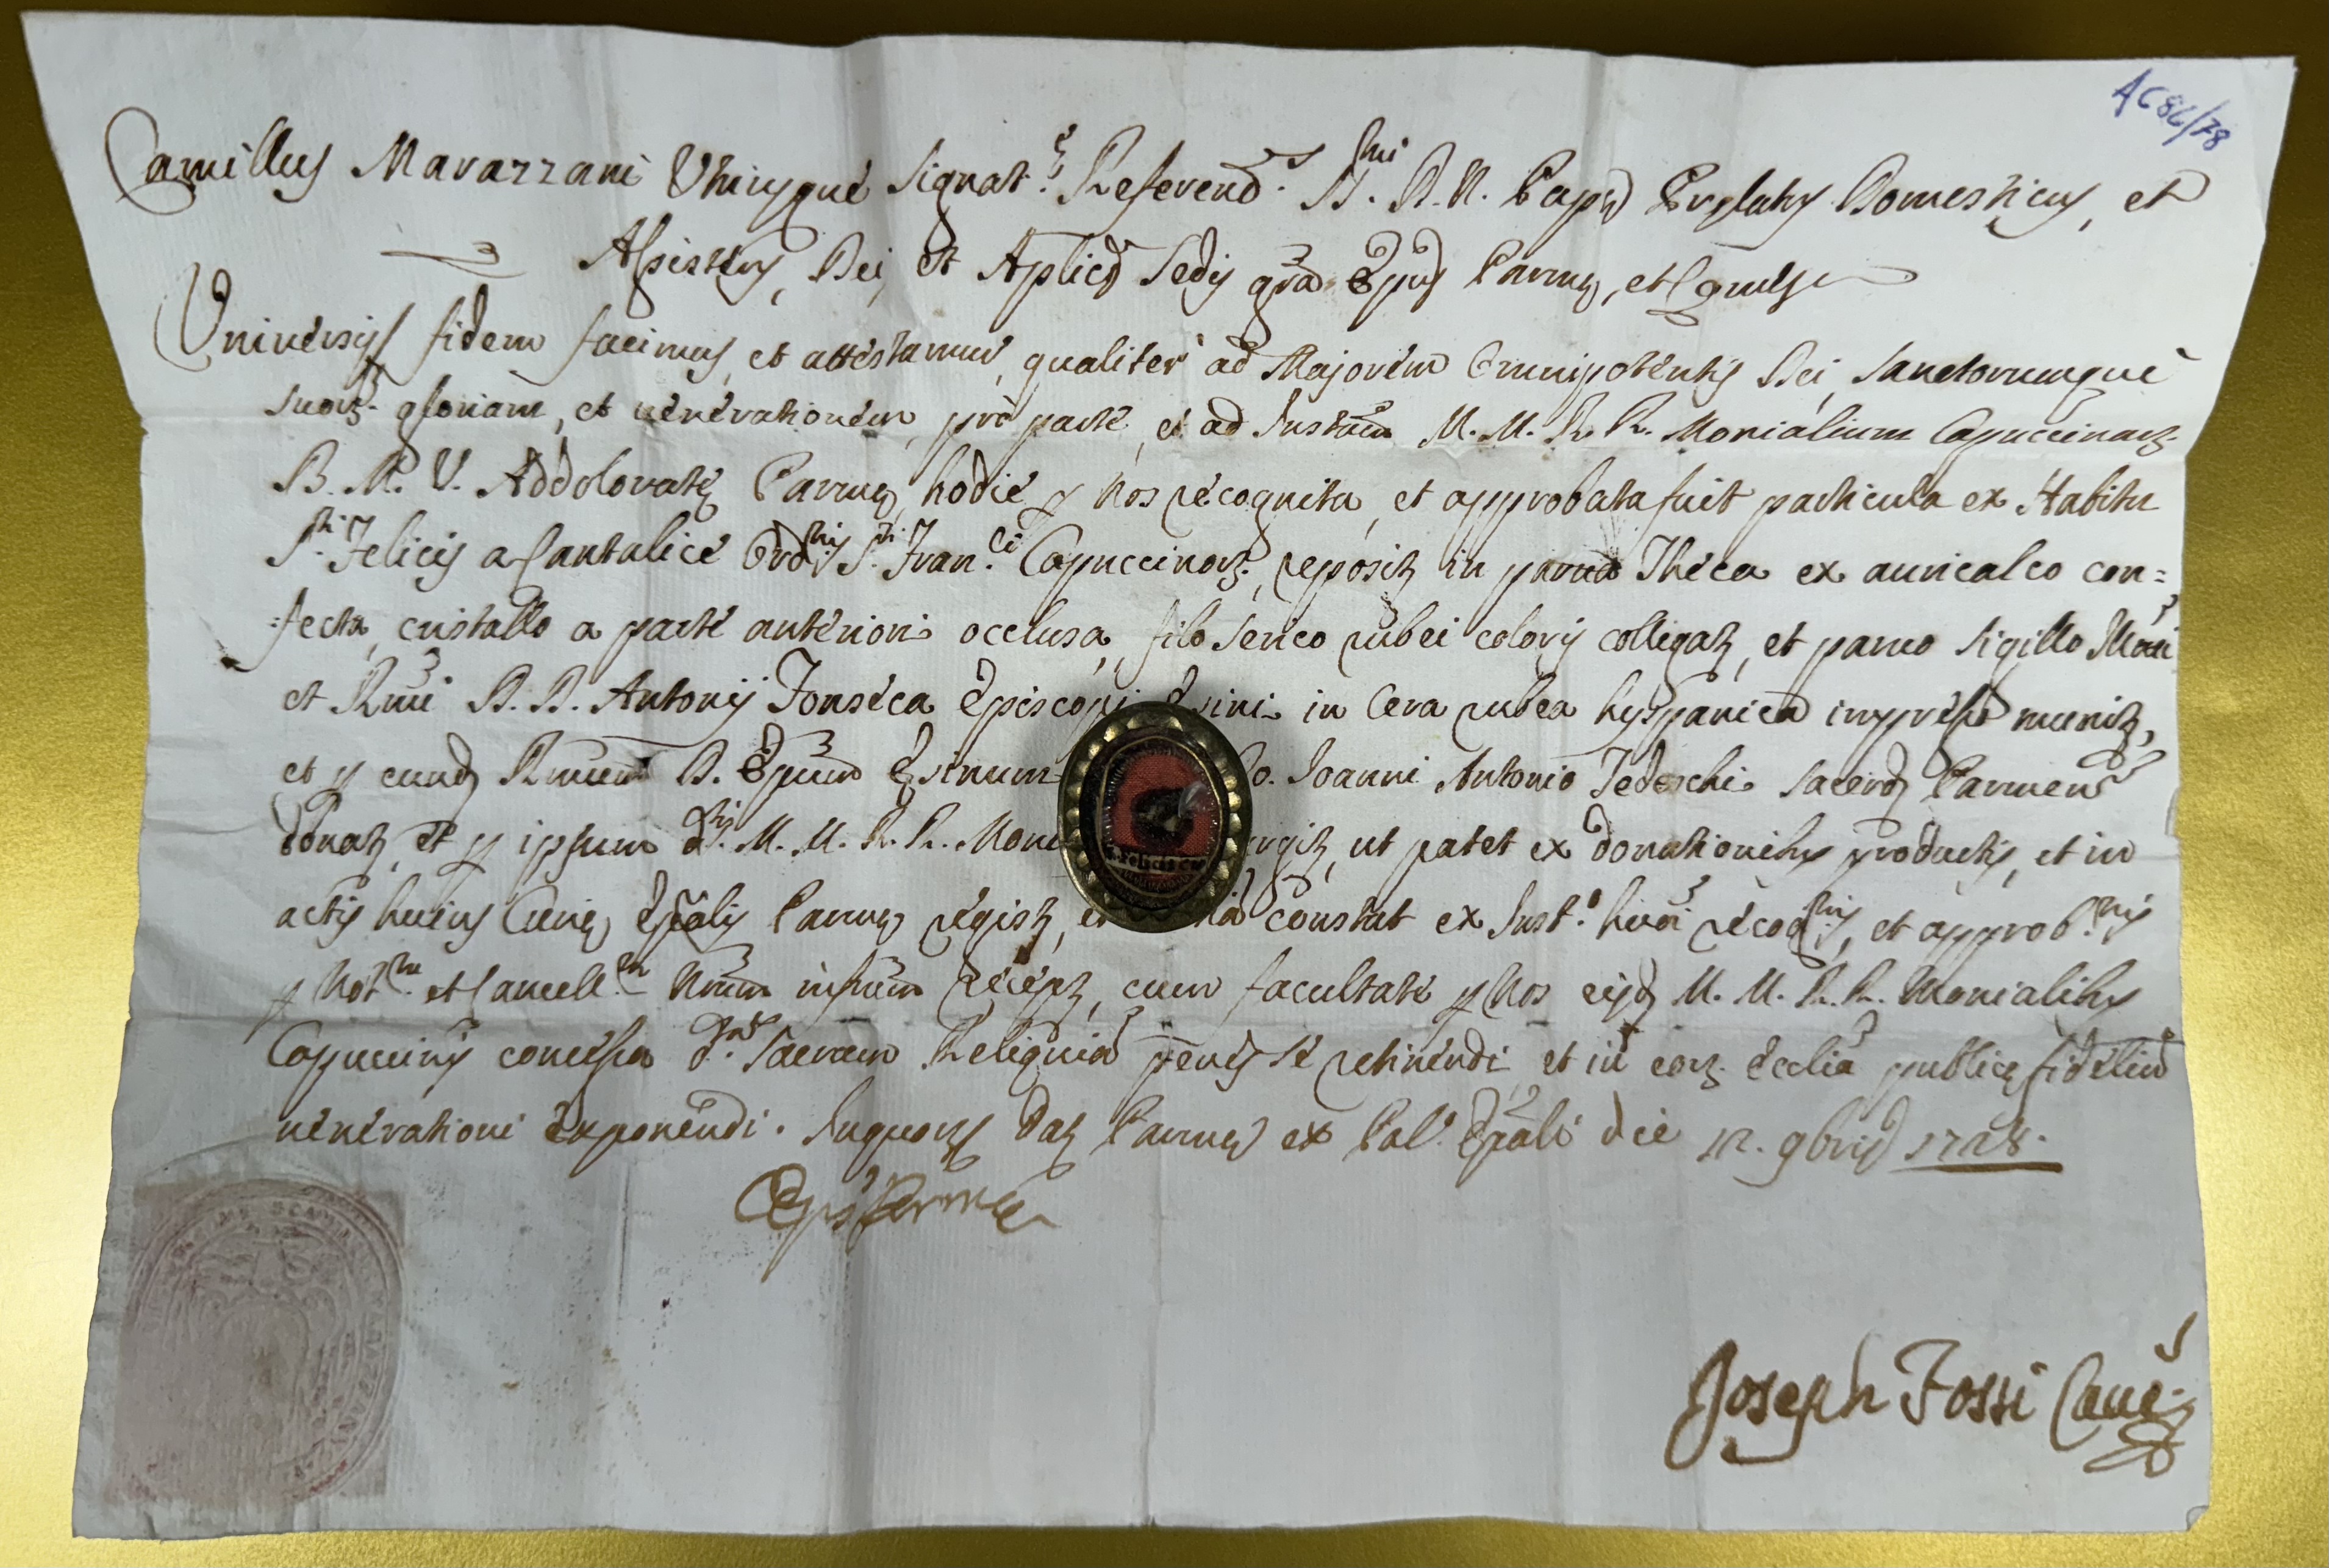 AC 86/78
Camillus Marazzani Utriusque Signat.ę Referend. SS.mi D. N. Papę Pręlatus Domesticus, et
Assistens, Dei, et Aplicę Sedis grã Epus Parmę, et Comes
Universis fidem facimus, et attestamur, qualiter ad Majorem Omnipotentis Dei, Sanctorumque
suorz. gloriam, et venerationem, pro parte, et ad Instam M. M. R. R. Monialium Capuccinarz.
B. M. V. Addoloratę Parmę, hodie p nos recognita, et approbata fuit particula ex Habitu
S.ti Felicis a Cantalice Ord.nis S.ti Fran.ci Capuccinorz. reposit in parva Theca ex auricalco con=
=fecta, cristallo a parte anteriori occlusa, filo serico rubei coloris colligat, et parvo sigillo Illmi
et Rmi D. D. Antonij Fonseca Episcopi Esini in Cera rubea hyspanica impresso munit,
et p eund Rmum D. Epum Esinum Do. Joanni Antonio Tedeschi Sacerd Parmen
donat, et p ipsum d.is M. M. R. R. Moni argit, ut patet ex donationibus productis, et in
actis huius Curię Epãlis Parmę regist, et constat ex Inst.o hmõi recog.nis, et approb.nis
p Not.m et Cancell.m Nrum infrum recept, cum facultate p Nos eisd M. M. R. R. Monialibus
Capuccinis concessa d.am Sacram Reliquiã penes se retinendi, et in earz. Ecclia publicę fidelium
venerationi exponendi. In quorz Dat Parmę ex Pal.o Epãli die 12. 9bris 1728.
C Epus Parmę
Joseph Fossi Canc.
S. Felicis